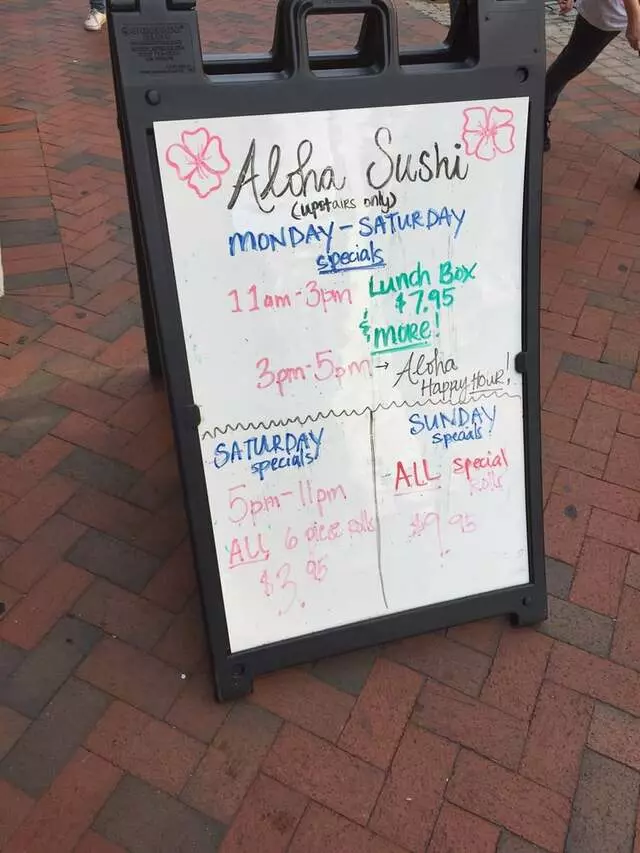 Aloha Sushi
(upstairs only)
MONDAY-SATURDAY
specials
11am-3pm Lunch Box
$7.95
& MORE!
3pm-5pm → Aloha
Happy Hour!
SATURDAY
specials
5pm-11pm
ALL 6 piece rolls
$3.95
SUNDAY
specials
ALL special
rolls
$9.95